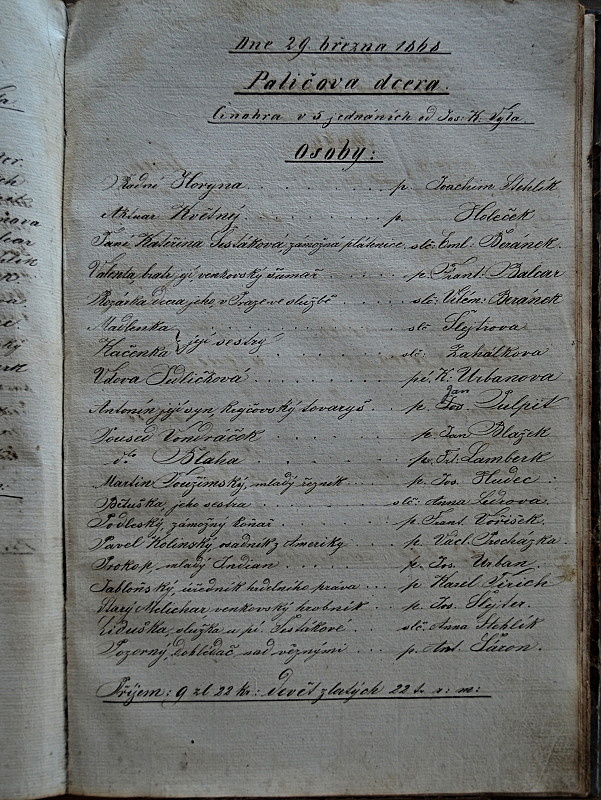 Dne 29. března 1868
Paličova dcera.
Činohra v 5 jednáních od Jos. K. Tyla
Osoby:
Radní Horyna . . . . . p. Joachim Stehlík
Aktuar Květný . . . . . p. Holeček
Paní Kateřina Šestáková zámožná plátenice slč. Eml. Beránek.
Valenta, bratr její, venkovský šumař . . . p. Frant. Balcar
Rozárka dcera jeho, v Praze ve službě . . . . slč. Vilém: Beránek
Madlenka
Kačenka } její sestry
slč. Slejtrova
slč. Zahálkova
Vdova Sedličková . . . . . pí. K. Urbanova
Antonín její syn, krejčovský tovaryš . . p. Jan Pulpit
Soused Vondráček . . . . . p. Jan Blažek
dto Bláha . . . . . p. Fr. Lamberk
Martin Toužimský, mladý řezník . . . p. Jos. Hudec :
Bětuška, jeho sestra . . . . . slč. Anna
Podleský, zámožný koňař . . . p. Frant. Voříšek.
Pavel Kolinský, osadník z Ameriky p. Václ. Procházka.
Prokop, mladý Indian . . . . p. Jos. Urban.
Jabloňský, úředník hrdelního práva . . . p. Karel
Starý Melichar venkovský hrobník . . . p. Jos. Slejter.
Liduška, služka u pí. Šestákové . . . . slč. Anna Stehlík
Pozorný, dohlédač nad vězními . . . . p. Ant. Šáron.
Příjem: 9 zl 22 kr: devět zlatých 22 k. r: m: